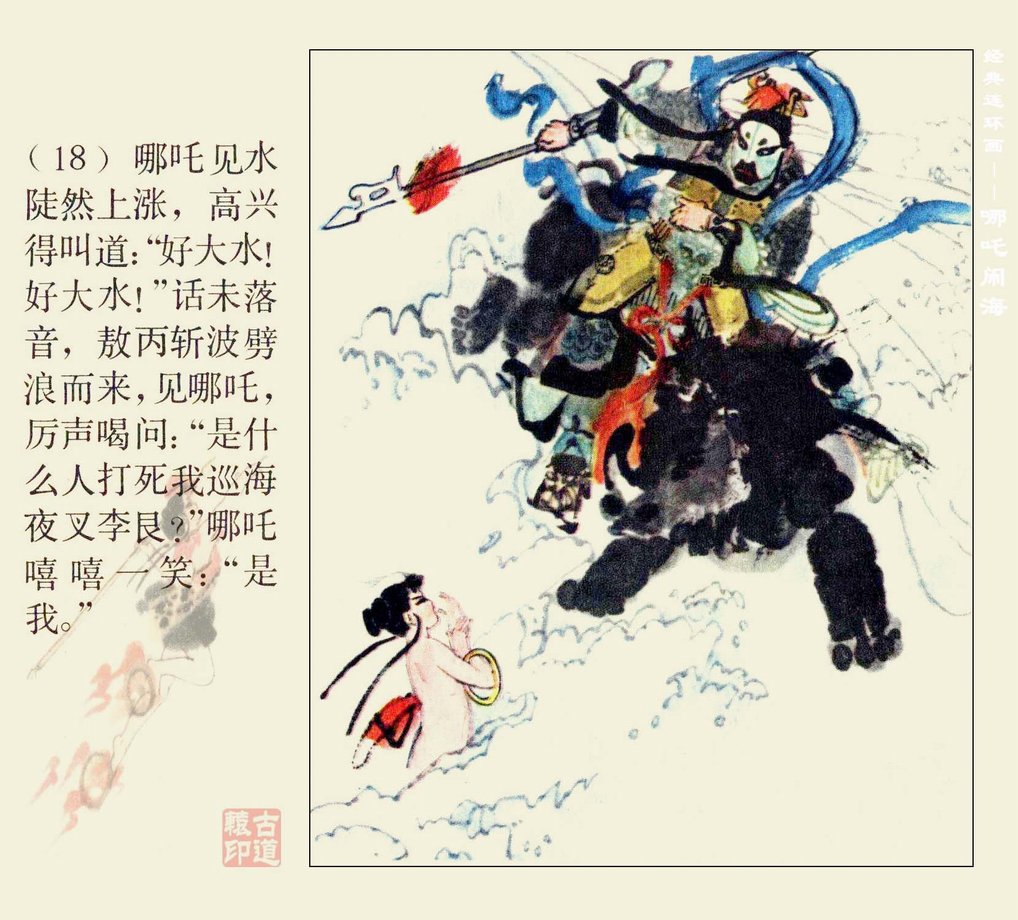 （18）哪吒见水
陡然上涨，高兴
得叫道：“好大水！
好大水！”话未落
音，敖丙斩波劈
浪而来，见哪吒，
厉声喝问：“是什
么人打死我巡海
夜叉李艮？”哪吒
嘻嘻一笑：“是
我。”
经典连环画——哪吒闹海
古道
辕印